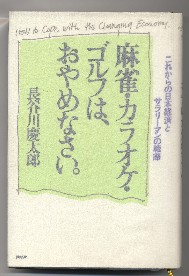 How to Cope with the Changing Economy.
麻雀・カラオケ・
ゴルフは、
おやめなさい。
長谷川慶太郎
これからの日本経済と
サラリーマンの戦略